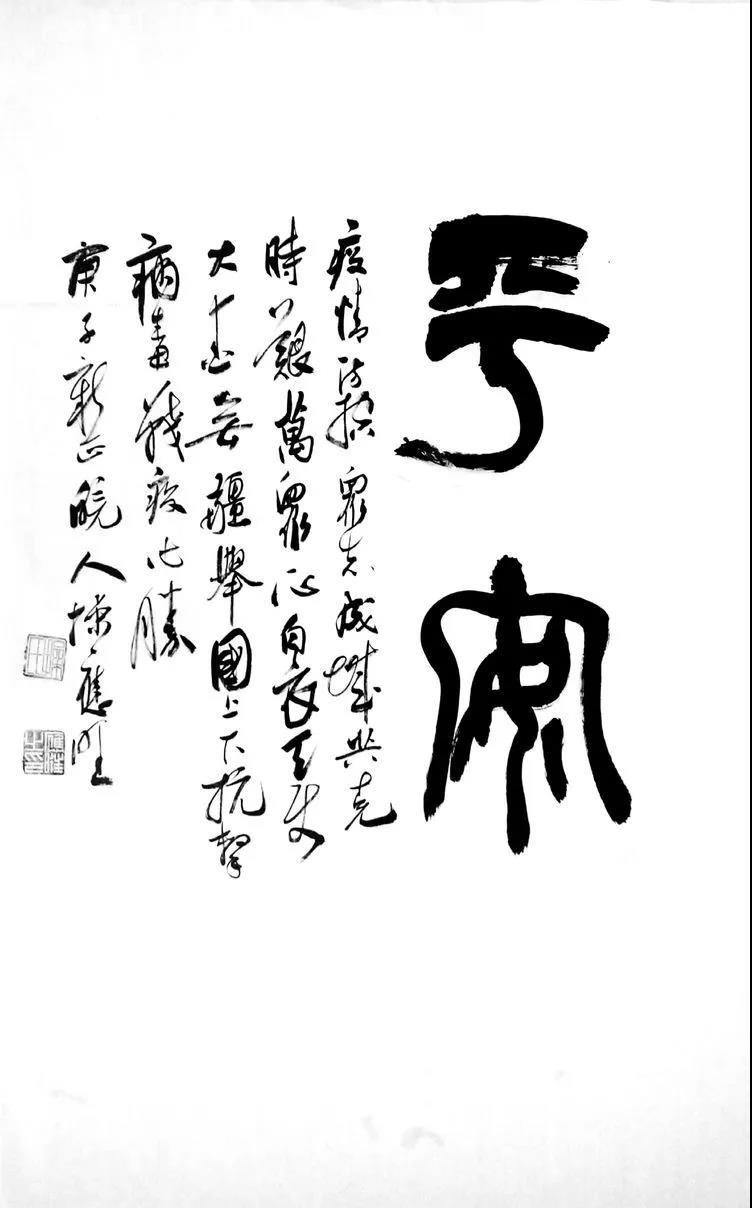 平安
疫情防控眾志成城共克
時艱萬眾一心白衣天使
大愛無疆舉國上下抗擊
病毒戰疫必勝
庚子新正皖人操應旺